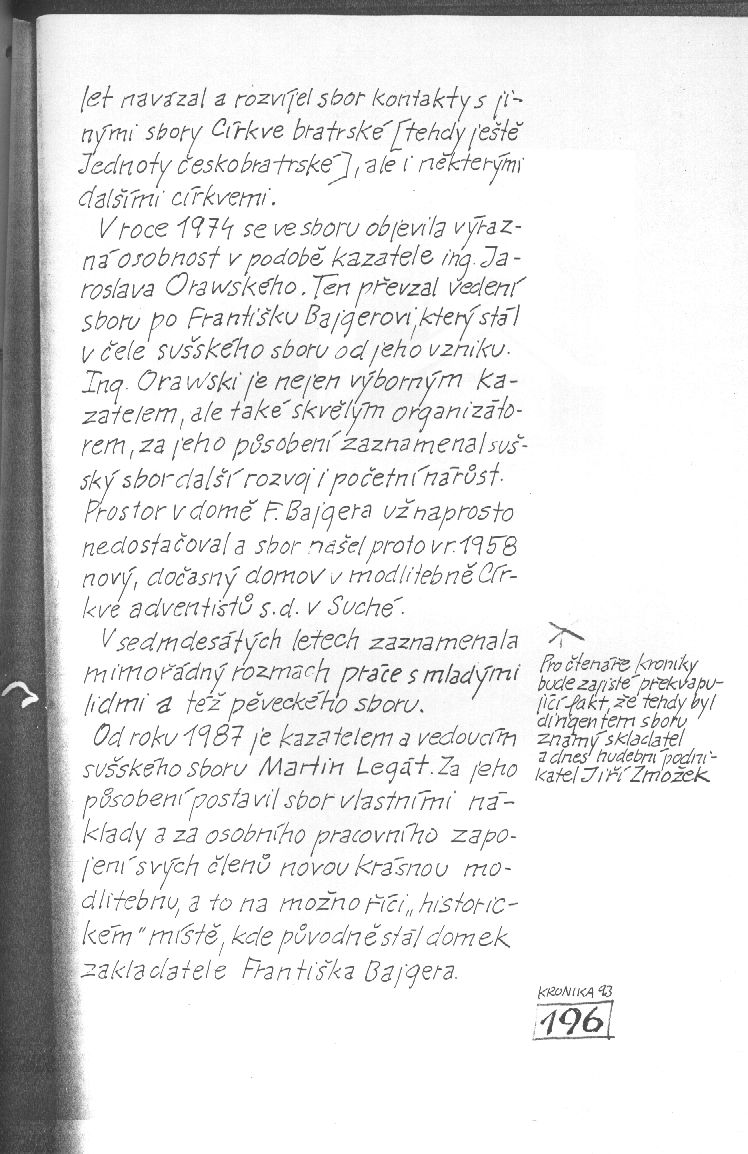 let navázal a rozvíjel sbor kontakty s ji-
nými sbory Církve bratrské [tehdy ještě
Jednoty českobratrské], ale i některými
dalšími církvemi.
V roce 1974 se ve sboru objevila výraz-
ná osobnost v podobě kazatele ing. Ja-
roslava Orawského. Ten převzal vedení
sboru po Františku Bajgerovi, který stál
v čele sušského sboru od jeho vzniku.
Ing. Orawski je nejen výborným ka-
zatelem, ale také skvělým organizáto-
rem, za jeho působení zaznamenal suš-
ský sbor další rozvoj i početní nárůst.
Prostor v domě F. Bajgera už naprosto
nedostačoval a sbor našel proto v r. 1958
nový, dočasný domov v modlitebně Cír-
kve adventistů s.d. v Suché.
V sedmdesátých letech zaznamenala
mimořádný rozmach práce s mladými
lidmi a též pěveckého sboru.
Od roku 1987 je kazatelem a vedoucím
sušského sboru Martin Legát. Za jeho
působení postavil sbor vlastními ná-
klady a za osobního pracovního zapo-
jení svých členů novou krásnou mo-
dlitebnu, a to na možno říci „historic-
kém" místě, kde původně stál domek
zakladatele Františka Bajgera.
Pro čtenáře kroniky
bude zajisté překvapu-
jící fakt, že tehdy byl
dirigentem sboru
známý skladatel
a dnes hudební podni-
katel Jiří Zmožek
KRONIKA 93
196